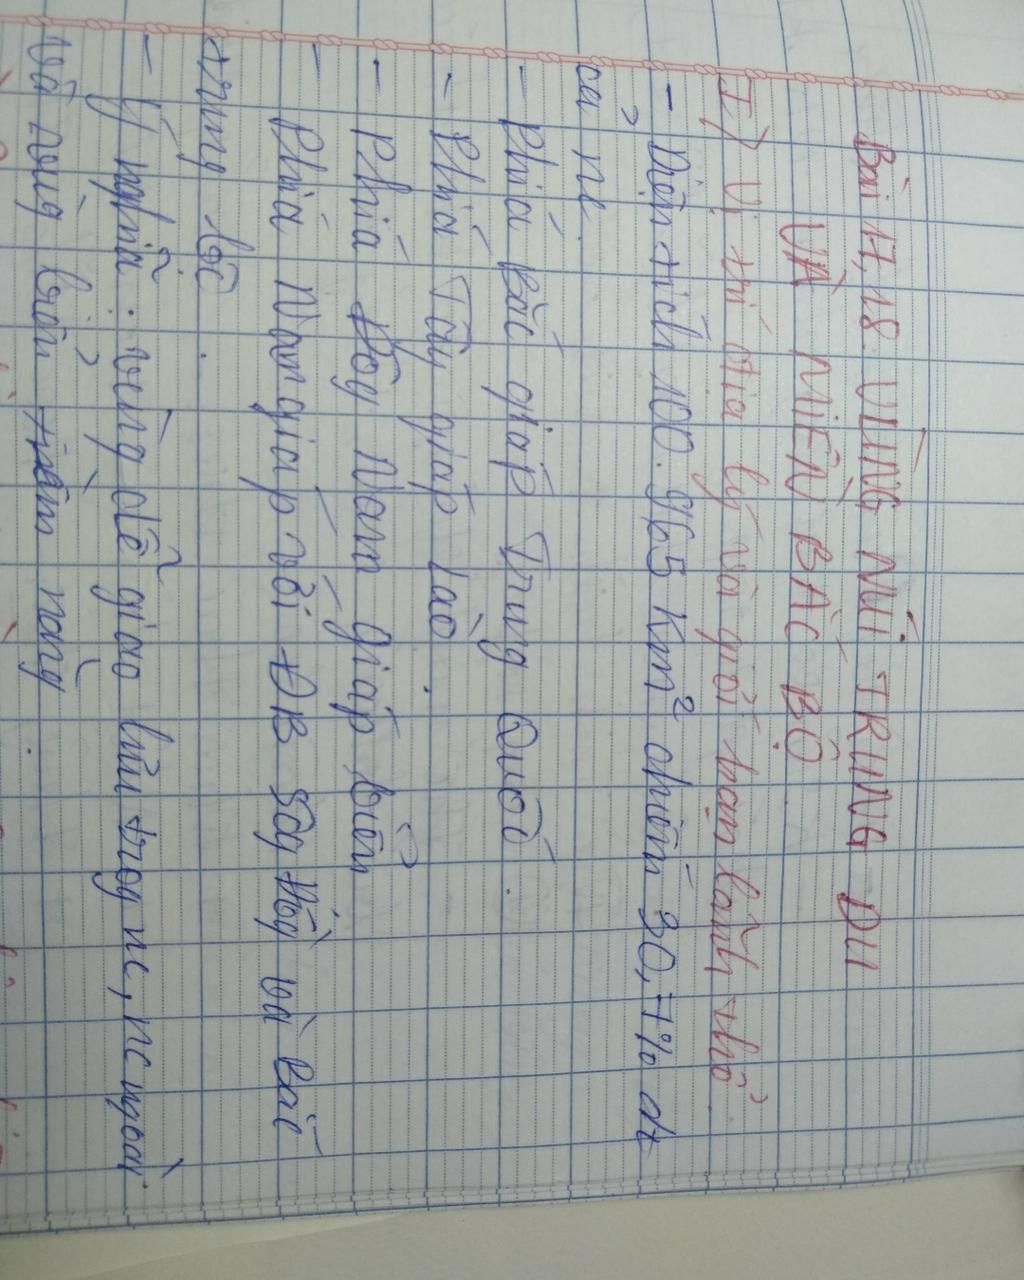 Bài 17, 18. VÙNG NÚI TRUNG DU
VÀ MIỀN BẮC BỘ
I) Vị trí địa lý và giới hạn lãnh thổ
- Diện tích 100.965 Km² chiếm 30,7% dt
cả nc.
- Phía bắc giáp Trung Quốc.
- Phía Tây giáp Lào.
- Phía Đông Nam giáp biển
- Phía Nam giáp với ĐB Sông Hồng và Bắc
trung bộ.
- Ý nghĩa: vùng dễ giao lưu trog nc, nc ngoài
và vùng biển tiềm năng.